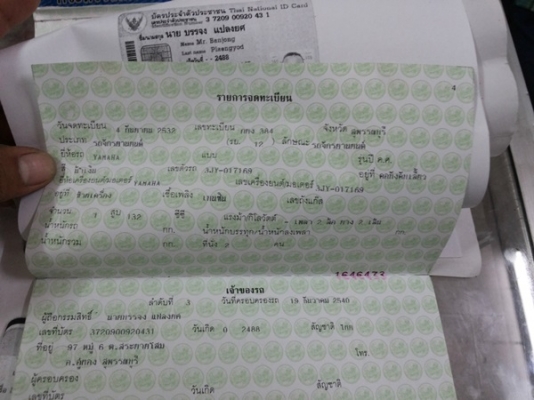 บัตรประจำตัวประชาชน Thai National ID Card
3 7209 00920 43 1
นาย บรรจง แปลงยศ
Name Mr. Banjong
Last name Plangyod
2488
4
รายการจดทะเบียน
วันจดทะเบียน 4 กันยายน 2532 เลขทะเบียน 384 จังหวัด สุพรรณบุรี
ประเภท รถจักรยานยนต์ (รย. 12) ลักษณะ รถจักรยานยนต์
ยี่ห้อรถ YAMAHA แบบ รุ่นปี ค.ศ.
สี เลขตัวรถ 3JY-017169 อยู่ที่
ยี่ห้อเครื่องยนต์/มอเตอร์ YAMAHA เลขเครื่องยนต์/มอเตอร์ 3JY-017169
อยู่ที่ ข้างเครื่อง เชื้อเพลิง เบนซิน เลขถังแก๊ส
จำนวน 1 สูบ 132 ซีซี แรงม้า/กิโลวัตต์ - เพลา 2 ล้อ ยาง 2 เส้น
น้ำหนักรถ กก. น้ำหนักบรรทุก/น้ำหนักลงเพลา กก.
น้ำหนักรวม กก. ที่นั่ง 2 คน
1646473
เจ้าของรถ
ลำดับที่ 3 วันที่ครอบครองรถ 19 ธันวาคม 2540
ผู้ถือกรรมสิทธิ์ นายบรรจง แปลงยศ
เลขที่บัตร 3720900920431 วันเกิด 0 2488 สัญชาติ ไทย
ที่อยู่ 97 หมู่ 6 ต.สระพังลาน
อ.อู่ทอง สุพรรณบุรี โทร.
ผู้ครอบครอง
เลขที่บัตร วันเกิด สัญชาติ